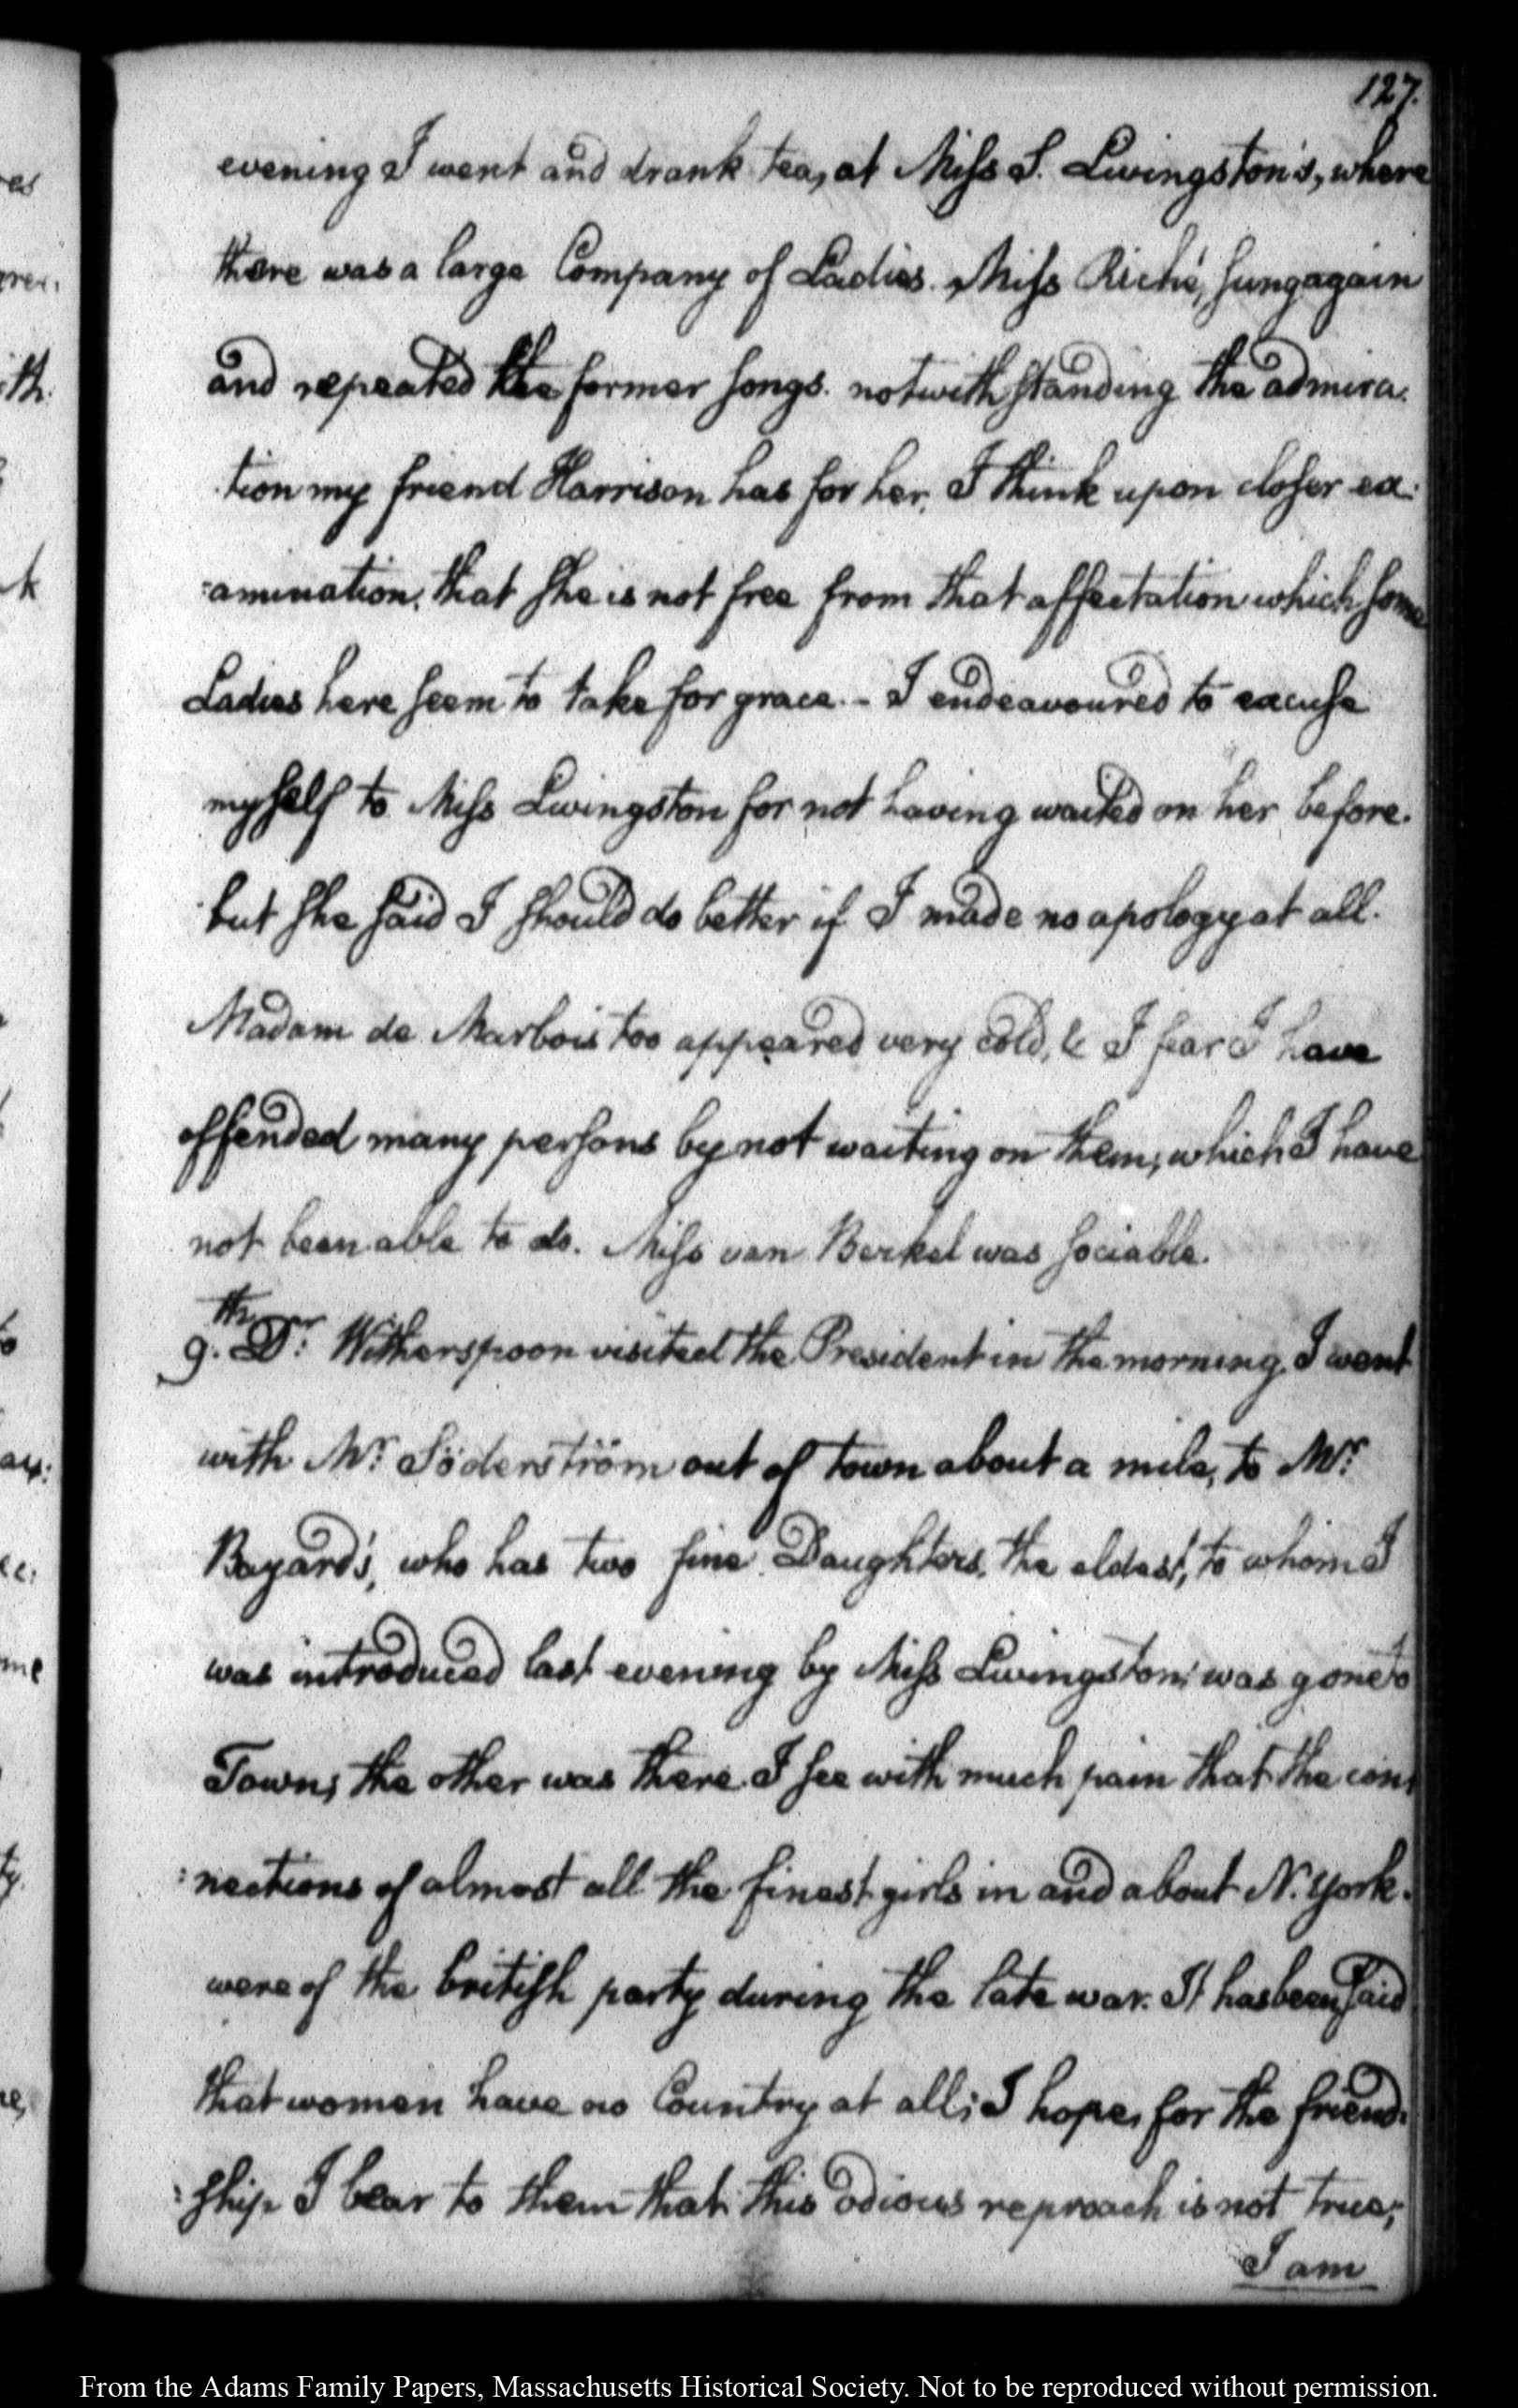 127.
evening I went and drank tea, at Miss S. Livingston's, where
there was a large Company of Ladies. Miss Riché, sung again
and repeated the former songs. notwithstanding the admira-
tion my friend Harrison has for her, I think upon closer ex:
:amination, that she is not free from that affectation which some
Ladies here seem to take for grace. - I endeavoured to excuse
myself to Miss Livingston for not having waited on her before.
but she said I should do better if I made no apology at all.
Madam de Marbois too appeared very cold, & I fear I have
offended many persons by not waiting on them, which I have
not been able to do. Miss van Berkel was sociable.
9.th Dr. Witherspoon visited the President in the morning, I went
with Mr. Söderström out of town about a mile, to Mr.
Bayard's, who has two fine Daughters, the eldest, to whom I
was introduced last evening by Miss Livingston; was gone to
Town; the other was there. I see with much pain that the con:
:nections of almost all the finest girls in and about N. York.
were of the british party during the late war. It has been said
that women have no Country at all; I hope, for the friend:
:ship I bear to them that this odious reproach is not true;
I am
es
ith
k
to
me
ty.
From the Adams Family Papers, Massachusetts Historical Society. Not to be reproduced without permission.